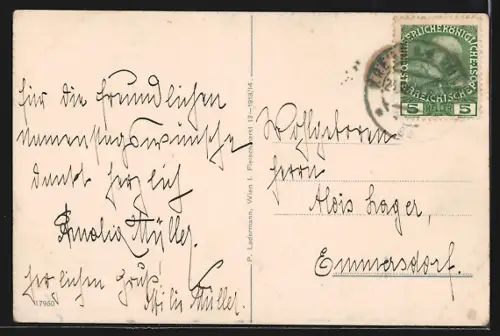 für die freundlichen
Namenstagswünsche
dankt herzlich
Amalia Müller.
herzlichen Gruß
Müller.
17950
P. Ledermann, Wien I. Fleischmarkt 17-1913/14
KAISERLICHE KÖNIGLICHE
ÖSTERREICHISCHE
5 5
Wohlgeboren
Herrn
Alois Lager,
Emmersdorf.